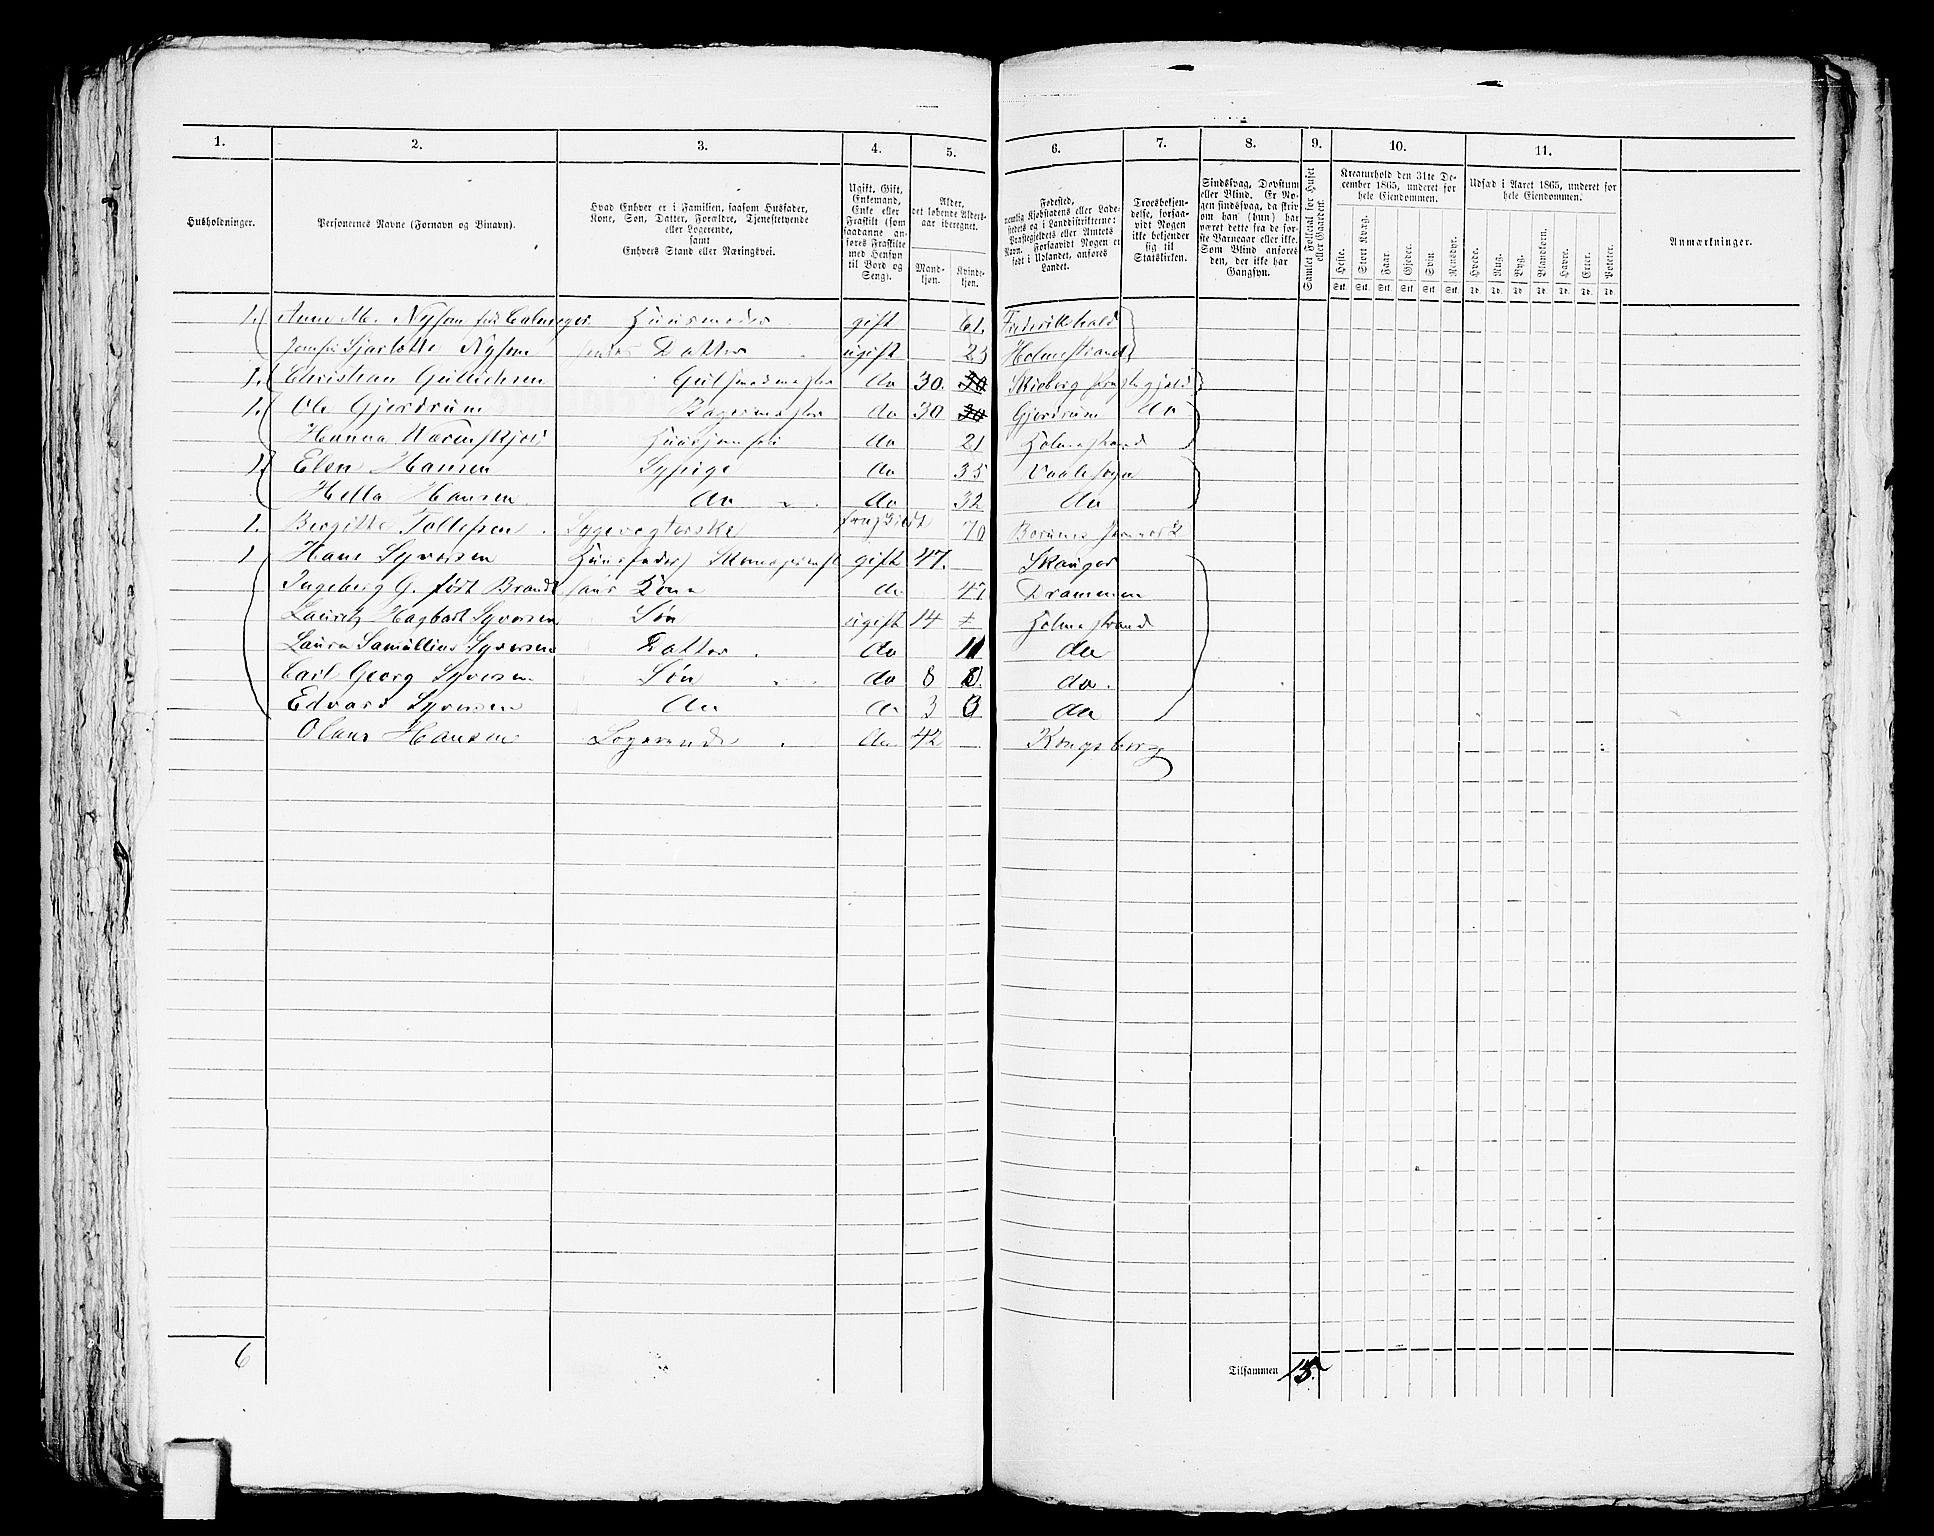 1. 2. 3. 4. 5. 6. 7. 8. 9. 10. 11.
Husholdninger.
Personernes Navne (Fornavn og Tilnavn).
Hvad Enhver er i Familien, saasom Husfader, Kone, Søn, Datter, Forældre, Tjenestetyende eller Logerende, samt Enhvers Stand eller Næringsvei.
Ugift, Gift, Enkemand, Enke eller Fraskilt (som saadanne anføres Fraskilte med Hensyn til Bord og Seng).
Alder, det løbende Aldersaar iberegnet.
Mandkjøn. Kvindekjøn.
Fødested, nemlig Kjøbstadens eller Ladestedets og i Landdistrikterne: Præstegjeldets eller Amtets Navn. Forsaavidt Nogen er født i Udlandet, anføres Landet.
Troesbekjendelse, forsaavidt Nogen ikke bekjender sig til Statskirken.
Sindssvag, Døvstum eller Blind. Er Nogen sindssvag, da skrives om han (hun) har været dette fra de første Barneaar eller ikke. Som Blind anføres den, der ikke har Gangsyn.
Gamlet Folketal for Huset eller Gaarden.
Kreaturhold den 31te December 1865, underet for hele Eiendommen.
Heste. Stort Kvæg. Faar. Gjeder. Svin. Rensdyr.
Stk. Stk. Stk. Stk. Stk. Stk.
Udsæd i Aaret 1865, underet for hele Eiendommen.
Hvede. Rug. Byg. Blandkorn. Havre. Erter. Poteter.
Td. Td. Td. Td. Td. Td. Td.
Anmærkninger.
1. Anne M. Nysom Huusmoder gift 61. Frederikshald
Jomfru Sjarlotte Nysom Datter ugift 23 Holmestrand
1. Christian Gullichsen Gulsmedmester do 30. 30 Skieberg Præstegjeld
1. Ole Gjerdrum Bagermester do 30 30 Gjerdrum do
Hanna Narenskjold Huusjomfru do 21 Holmestrand
1. Elen Hansen Sypige do 35 Vaale sogn
Hella Hansen do do 32 do
1. Bergitte Tollefsen Sygevogterske 70
1 Hans Syversen Huusfader gift 47. Skouger
Ingeberg G. født Brandt hans Kone do 47 Drammen
Lauritz Hagbart Syversen Søn ugift 14 Holmestrand
Laura Samilline Syversen Datter do 11 do
Carl Georg Syversen Søn do 8 do.
Edvard Syversen do do 3 do
Olaus Hansen Logerende do 42 Kongsberg
6
Tilsammen 15.